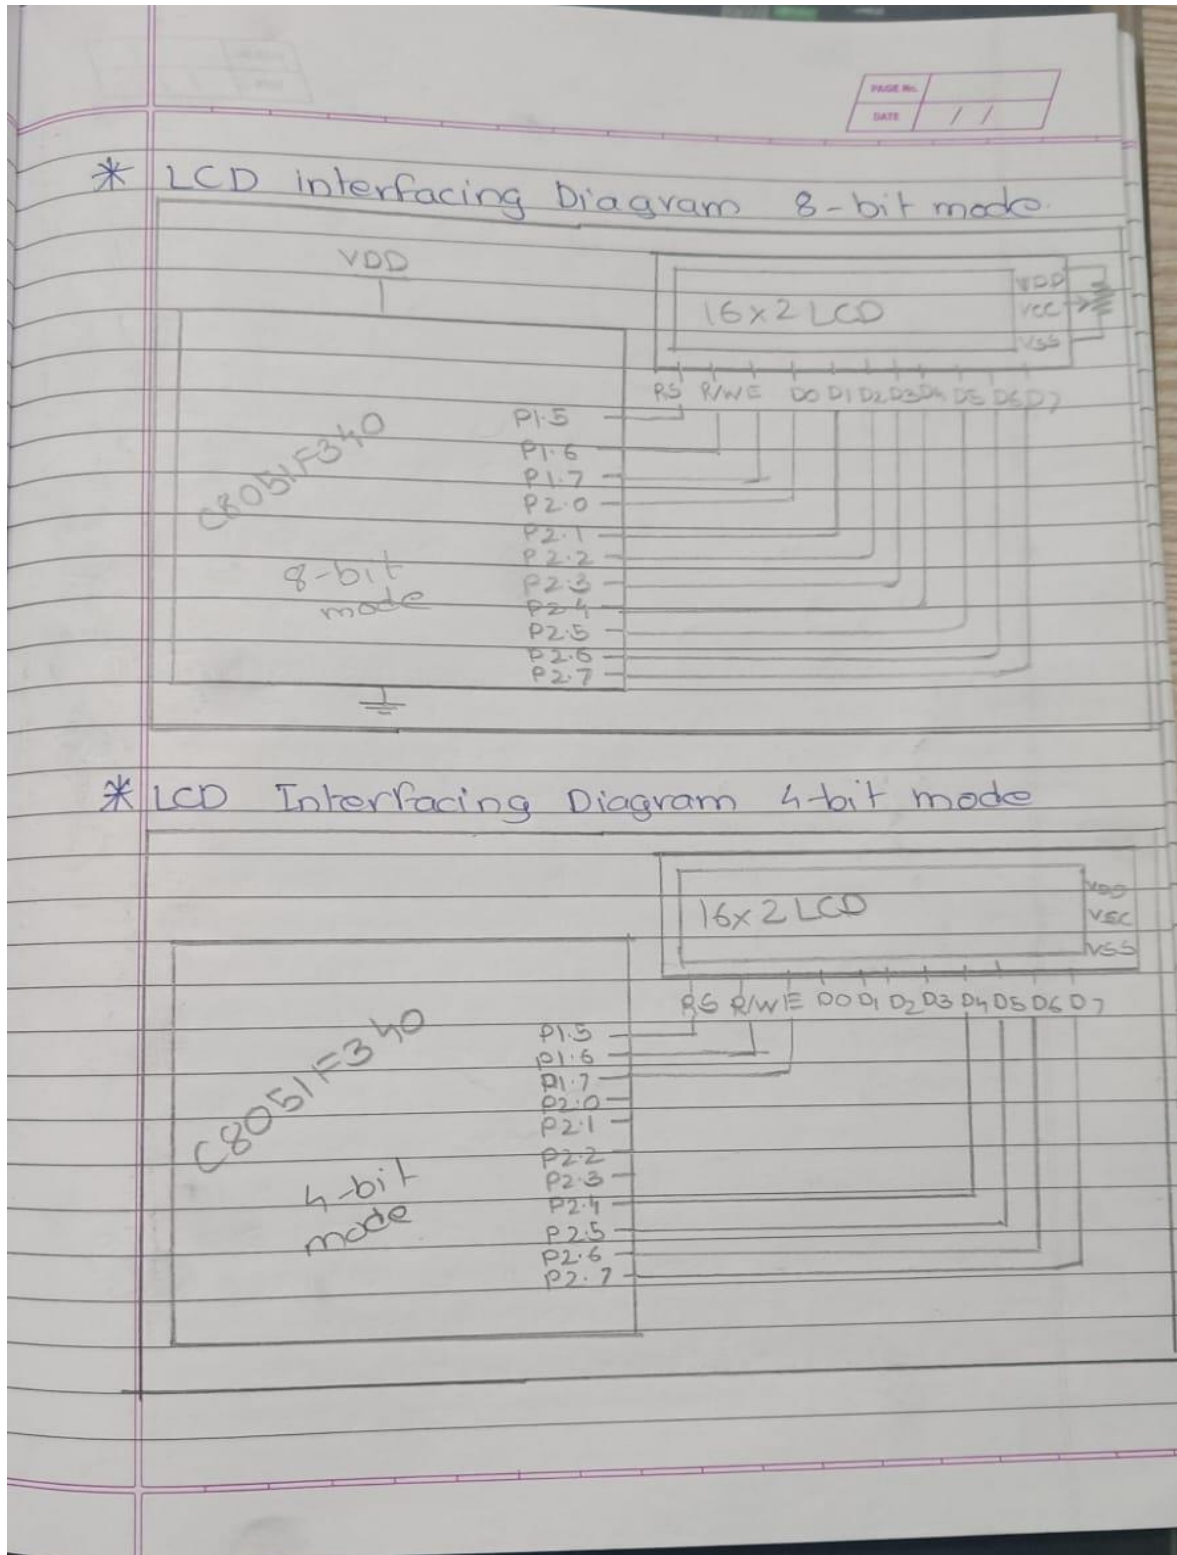 PAGE No.
DATE / /
* LCD interfacing Diagram 8-bit mode.
VDD
16x2 LCD
VDD
VCC
VSS
RS R/W E D0 D1 D2 D3 D4 D5 D6 D7
C8051F340
8-bit
mode
P1.5
P1.6
P1.7
P2.0
P2.1
P2.2
P2.3
P2.4
P2.5
P2.6
P2.7
* LCD Interfacing Diagram 4-bit mode
16x2 LCD
VDD
VSS
RS R/W E D0 D1 D2 D3 D4 D5 D6 D7
C8051F340
4-bit
mode
P1.5
P1.6
P1.7
P2.0
P2.1
P2.2
P2.3
P2.4
P2.5
P2.6
P2.7